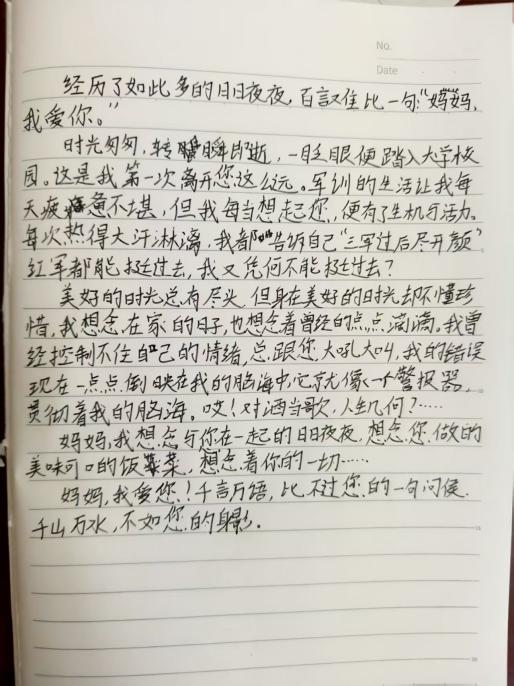 No.
Date
经历了如此多的日日夜夜,百言又难比一句:“妈妈,
我爱你。”
时光匆匆,转瞬即逝,一眨眼便踏入大学校
园。这是我第一次离开您这么远。军训的生活让我每
天疲惫不堪,但我每当想起您,便有了生机与活力。
每次热得大汗淋漓,我都告诉自己“三军过后尽开颜”,
红军都能挺过去,我又凭何不能挺过去?
美好的时光总有尽头,但身在美好的时光却不懂珍
惜,我想念在家的日子,也想念着曾经的点点滴滴。我曾
经控制不住自己的情绪,总跟您大吼大叫,我的错误
现在一点点倒映在我的脑海中,它就像一个警报器,
贯彻着我的脑海。哎!对酒当歌,人生几何?……
妈妈,我想念与你在一起的日日夜夜,想念您做的
美味可口的饭菜,想念着你的一切……
妈妈,我爱您!千言万语,比不过您的一句问侯.
千山万水,不如您的身影.